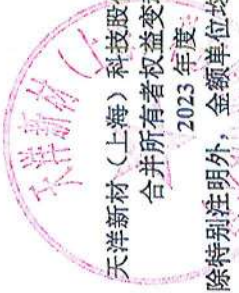 天洋新材（上
天洋新材（上海）科技股
合并所有者权益变
2023 年度
除特别注明外，金额单位